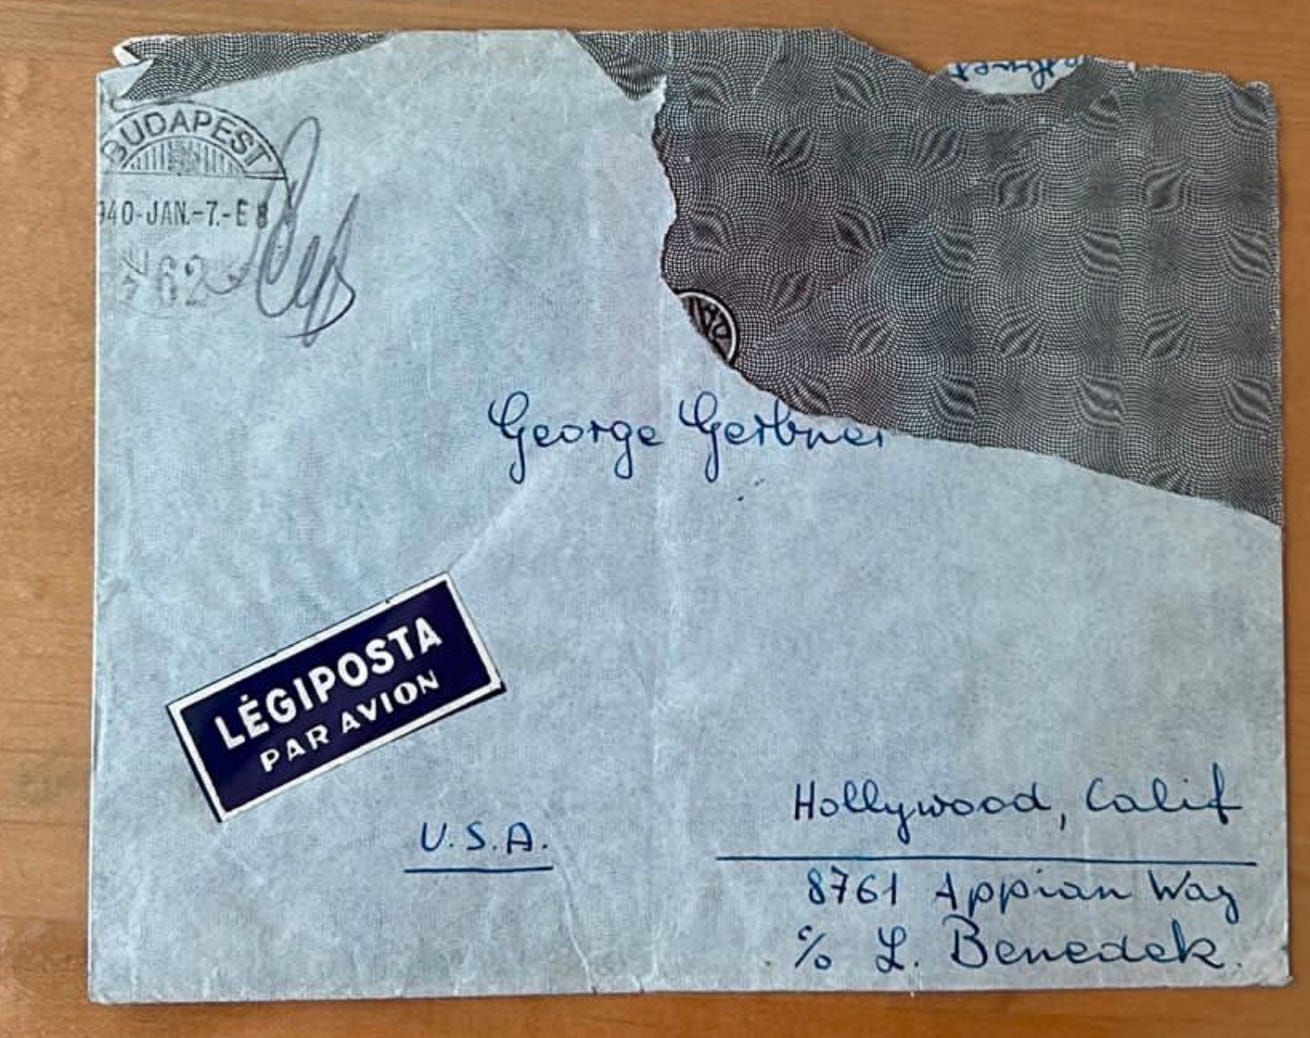 BUDAPEST
940-JAN.-7.-E 8
62
George Gerbner
LÉGIPOSTA
PAR AVION
U.S.A.
Hollywood, Calif
8761 Appian Way
c/o L. Benedek.